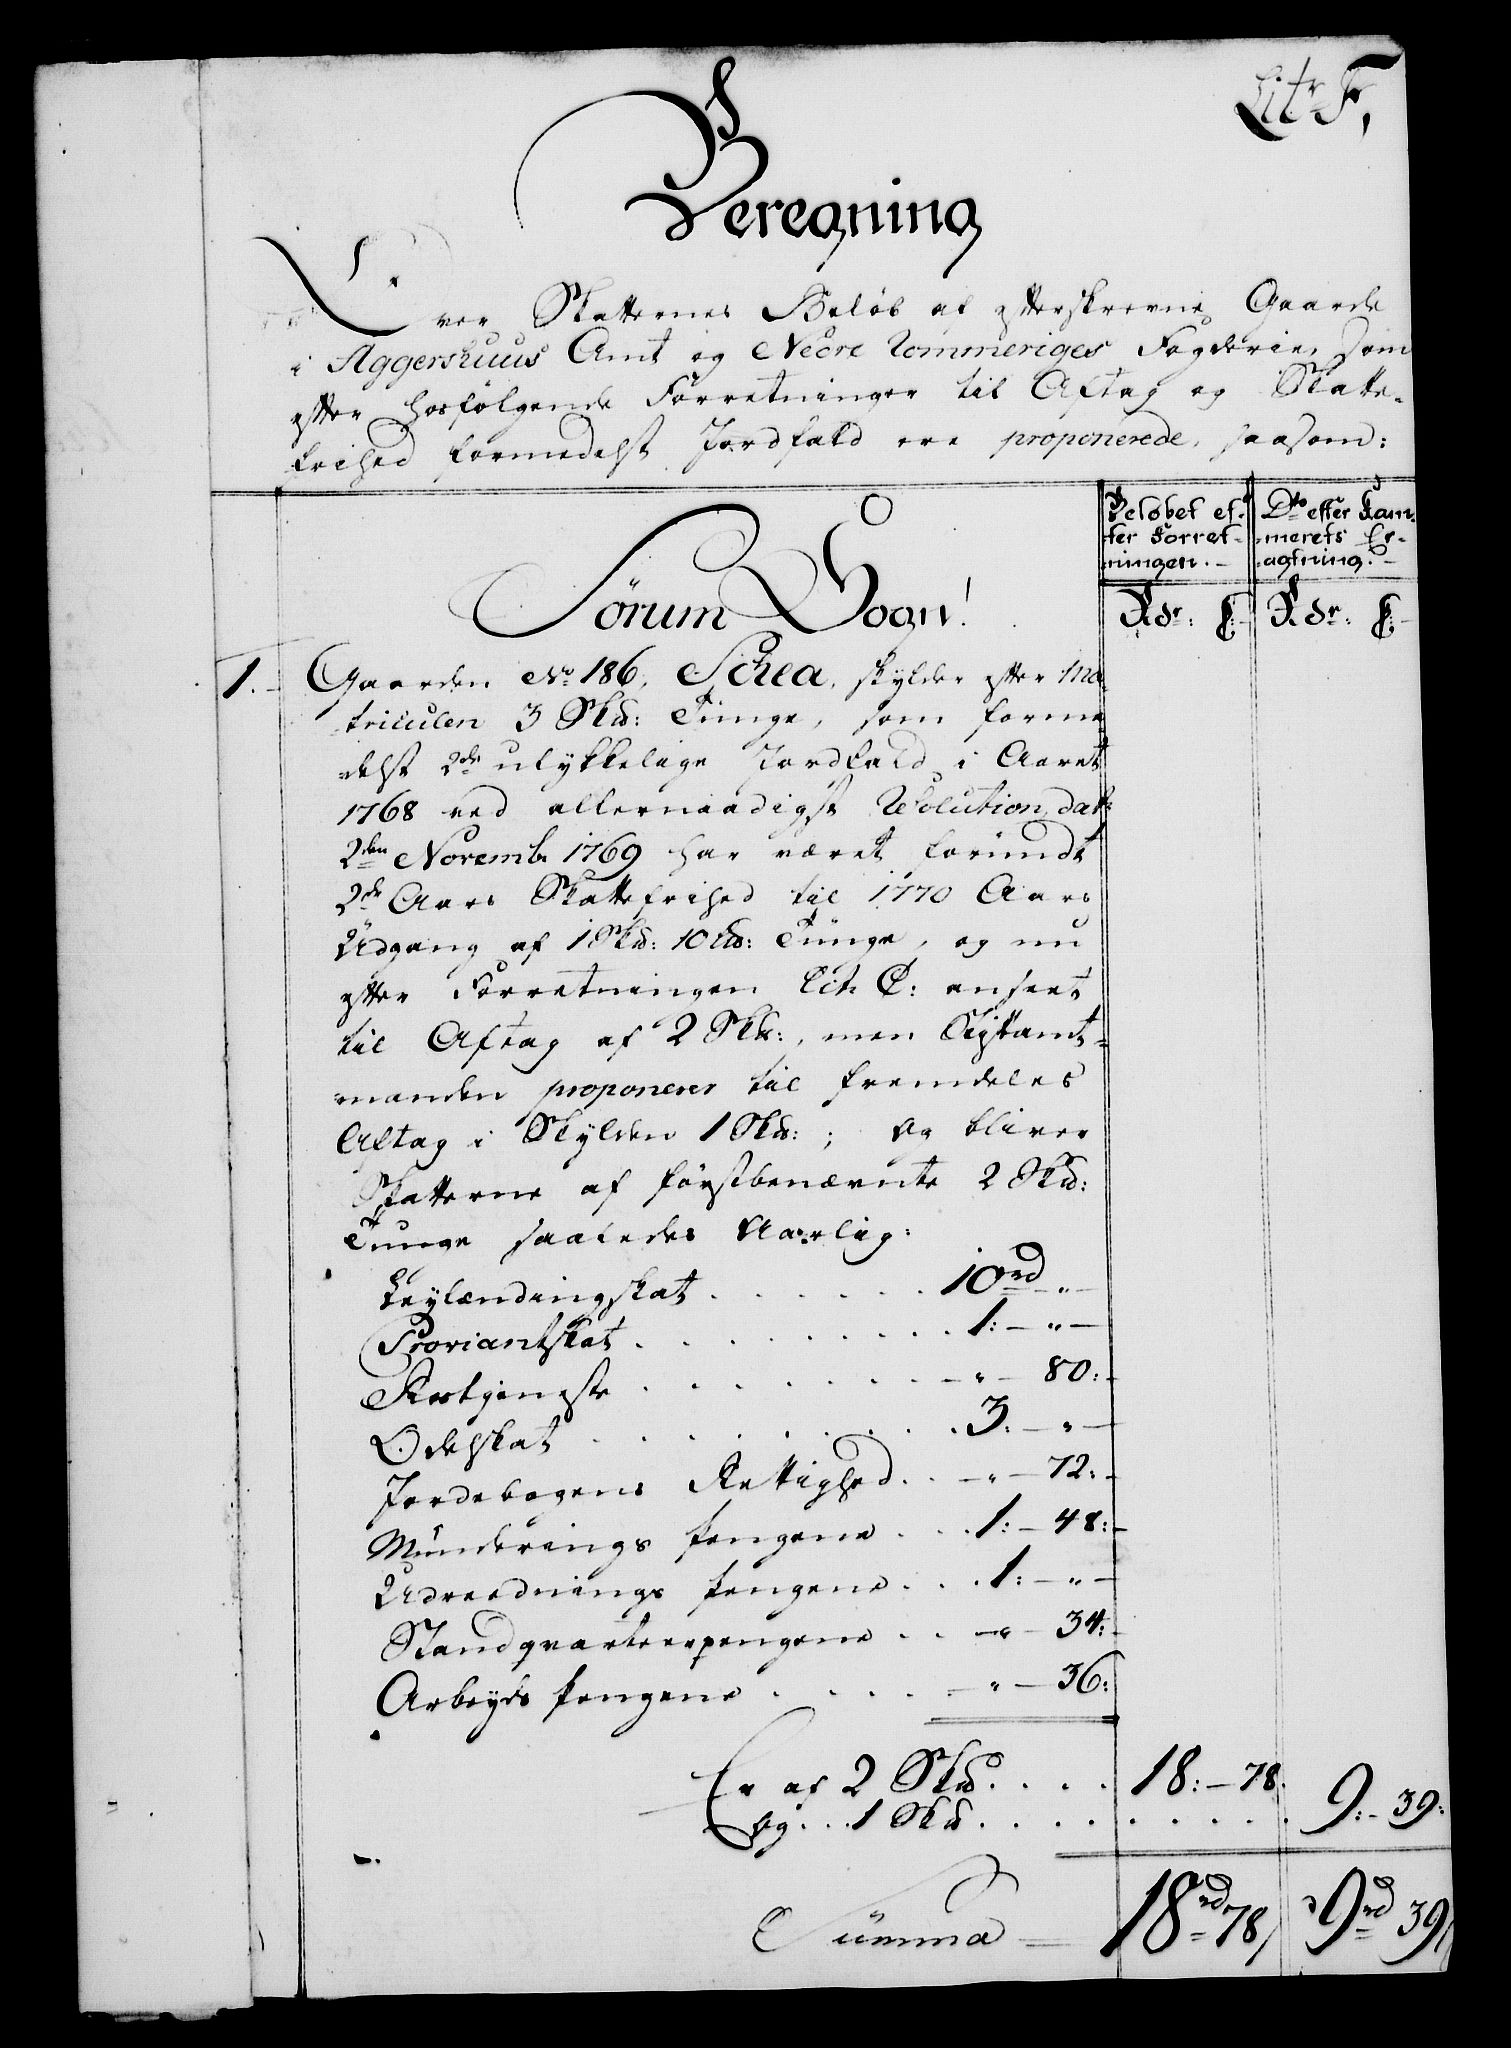 Litr F,
Beregning
Over Skatternes Beløb af efterskrevne Gaarde
i Aggershuus Amt og Nedre Rommeriges Fogderie, som
efter hosfølgende Forretninger til Aftag og Skatte-
frihed formedelst Jordfald ere proponerede, saasom:
Beløbet ef-
ter Forret-
ningen.
Dto efter Kam-
merets Er-
agtning.
Rdr: ß:
Rdr: ß:
Sørum Sogn!
1. Gaarden No 186, Schea, skylder efter Ma-
triculen 3 Skd: Tunge, som forme-
delst 2de ulykkelige Jordfald i Aaret
1768 ved allernaadigst Resolution dat:
2den Novembr 1769 har været forundt
2de Aars Skattefrihed til 1770 Aars
Udgang af 1 Skd: 10 Ld: Tunge, og nu
efter Forretningen Litr C: anseet
til Aftag af 2 Skd:, men Stiftamt-
manden proponerer til fremdeles
Aftag i Skylden 1 Skd:; og bliver
Skatterne af førstbenævnte 2 Skd:
Tunge saaledes Aarlig:
Leylændingskat . . . . . . 10rd - „ -
Proviantskat . . . . . . . . 1: - „ -
Rostjeneste . . . . . . . - „ - 80: -
Odelskat . . . . . . . . 3: - „ -
Jordebogens Rettighed . . - „ - 72: -
Munderings Pengene . . . 1: - 48: -
Udreednings Pengene . . . 1: - „ -
Standqvarteerpengene . . - „ - 34: -
Arbeyds Pengene . . . . . - „ - 36:
Er af 2 Skd . . . . 18: - 78.
og . . . 1 Skd . . . . . . . . . 9: - 39:
Summa 18rd 78/ 9rd 39/